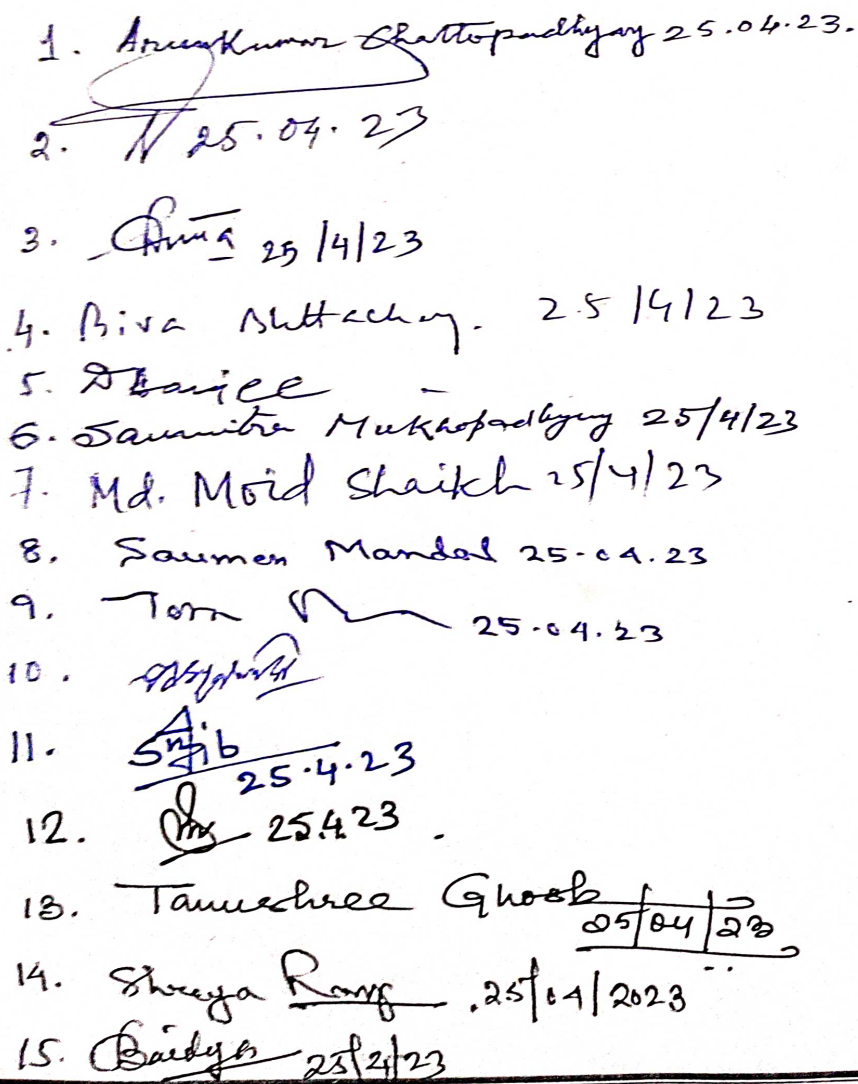 1. Arun Kumar Chattopadhyay 25.04.23.
2. 25.04.23
3. 25/4/23
4. Biva Bhttachay. 25/4/23
5.
6. Saumitra Mukhopadhyay 25/4/23
7. Md. Moid Shaikh 25/4/23
8. Saumen Mandal 25-04.23
9. 25.04.23
10.
11. Snjib
25.4.23
12. 25.4.23.
13. Tanushree Ghosh
25/04/23
14. Shreya 25/04/2023
15. Baidya 25/4/23